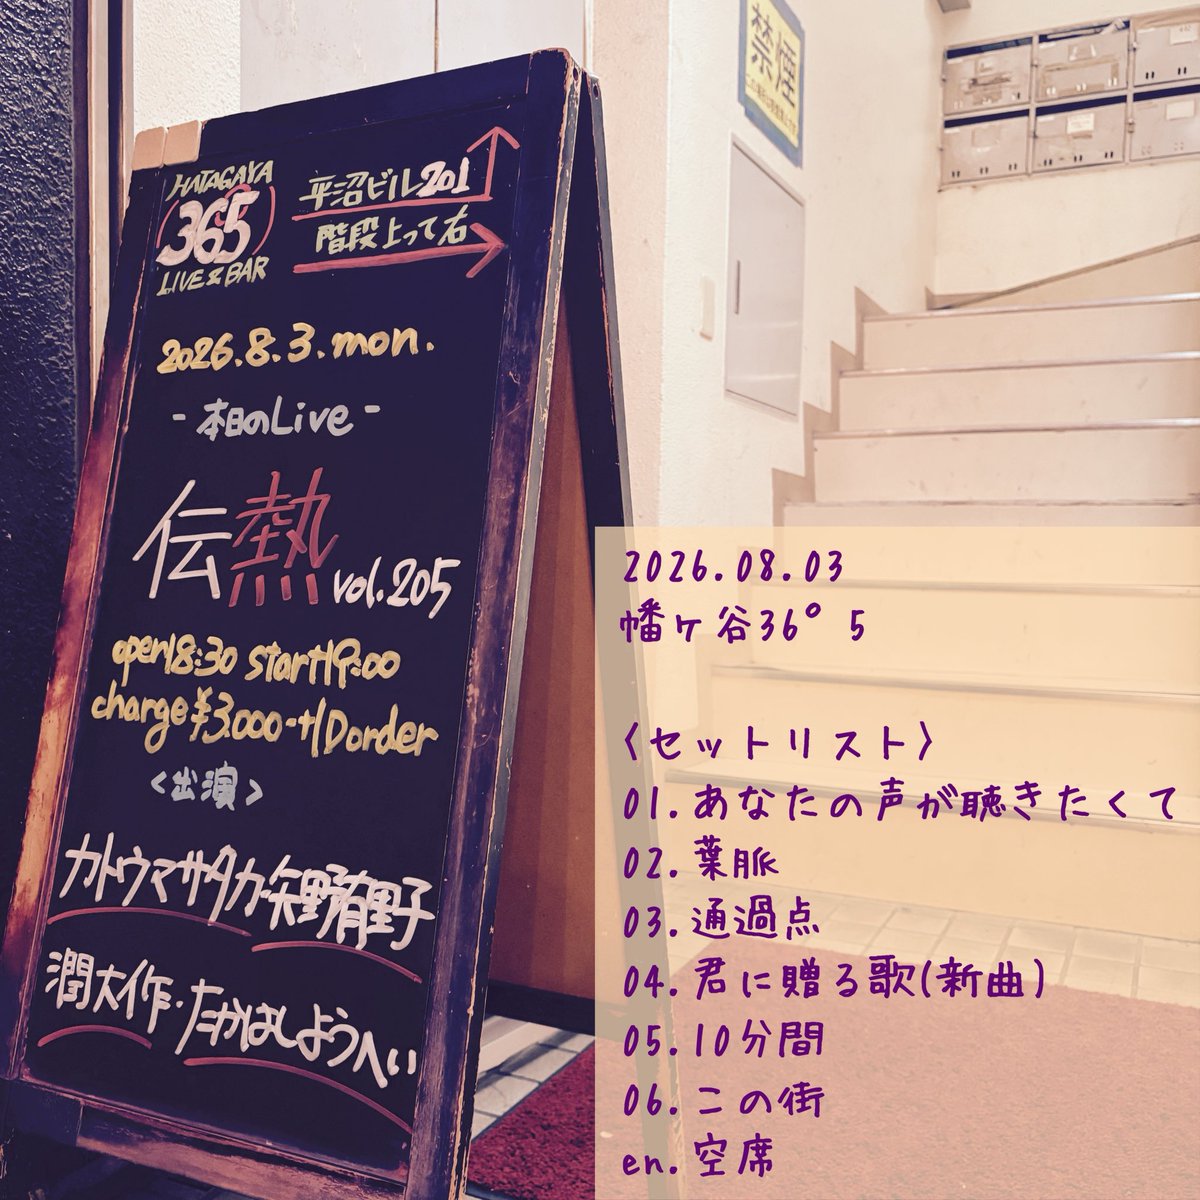 HATAGAYA
36°5
LIVE & BAR
平沼ビル201
階段上って右
2026.8.3.mon.
- 本日のLive -
伝熱 vol.205
open18:30 start19:00
charge ¥3.000-+1Dorder
<出演>
カトウマサタカ・矢野有里子
潤大作・たかはしようへい
禁煙
2026.08.03
幡ヶ谷36°5
〈セットリスト〉
01.あなたの声が聴きたくて
02.葉脈
03.通過点
04.君に贈る歌(新曲)
05.10分間
06.この街
en.空席